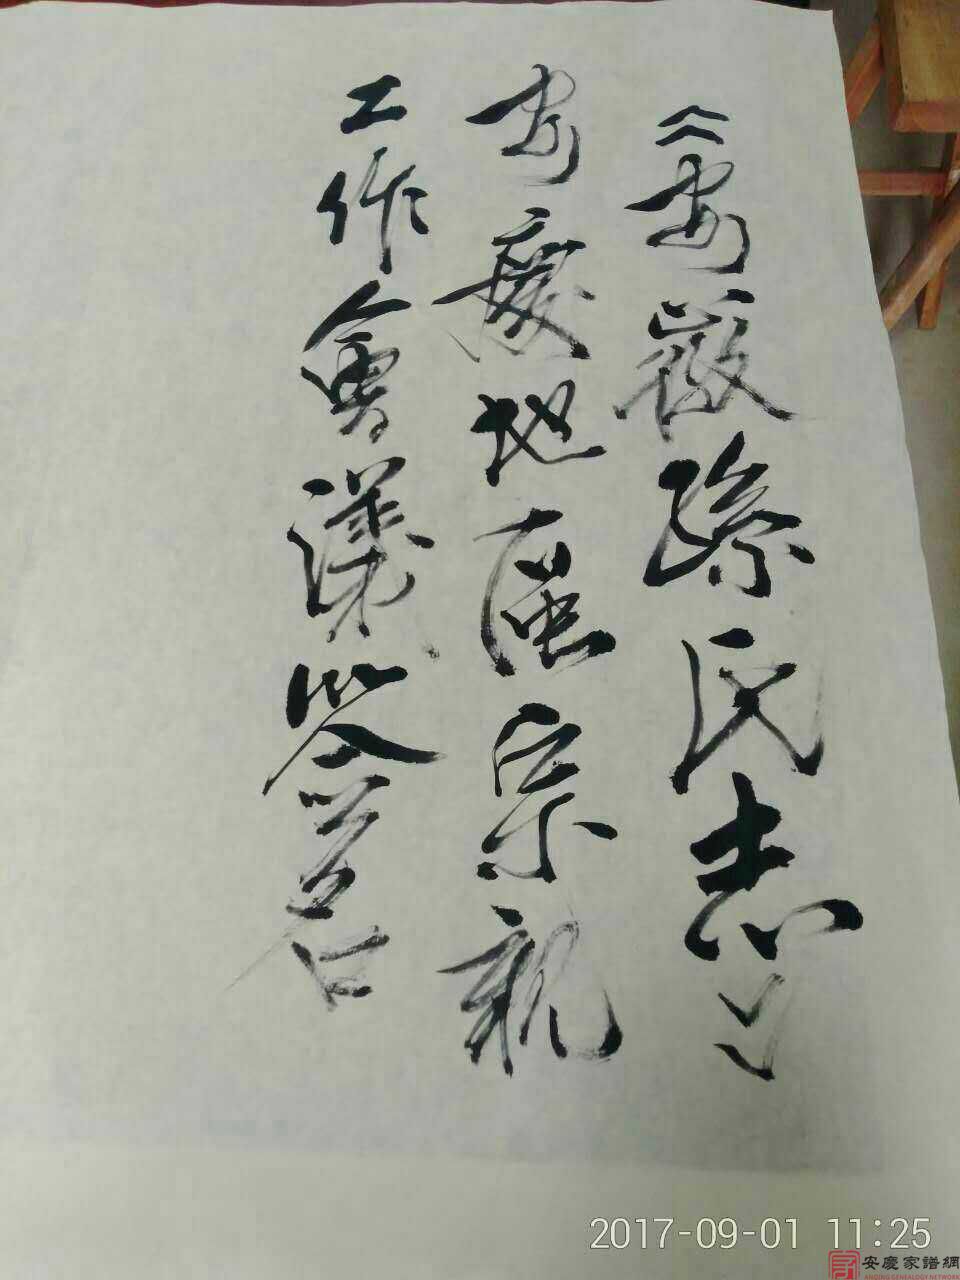 《安徽孫氏志》
安慶地區宗親
工作會議签名
2017-09-01 11:25
安慶家譜網
ANQING GENEALOGY NETWORK